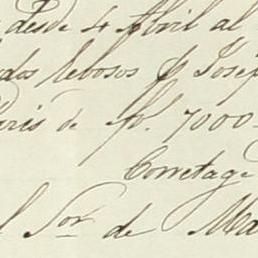 desde 4 Abril al
dos lebosos p Josep
de fp. 7000-
Corretage
l Sor. de Ma